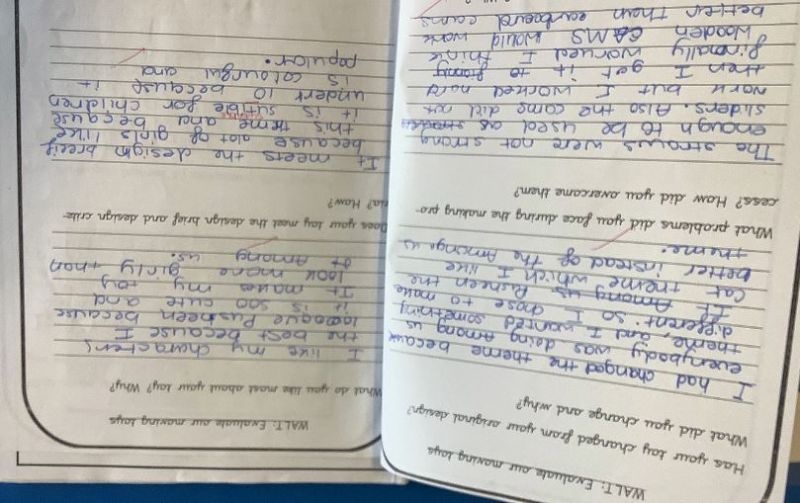 WALT: Evaluate our moving toys
Has your toy changed from your original design?
What did you change and why?
I had changed the theme because
everybody was doing Among us
theme and, I wanted something
different. So I chose to make
Among us Pusheen the
cat theme which I like
better instead of the Amongs us
theme.
What problems did you face during the making pro-
cess? How did you overcome them?
The straws were not strong
enough to be used as
sliders. Also the cams did not
work but I worked hard
then I get it to
finally worked I think
wooden CAMS would work
better than carboard cams
WALT: Evaluate our moving toys
What do you like most about your toy? Why?
I like my character
the best because I
looooove Pusheen because
it is soo cute and
It makes my toy
look more girly than
Among us.
Does your toy meet the design brief and design crite-
ria? How?
It meets the design breif
because alot of girls like
this theme and because
it is suitible for children
under 10 because it
is colourgul and
popular.